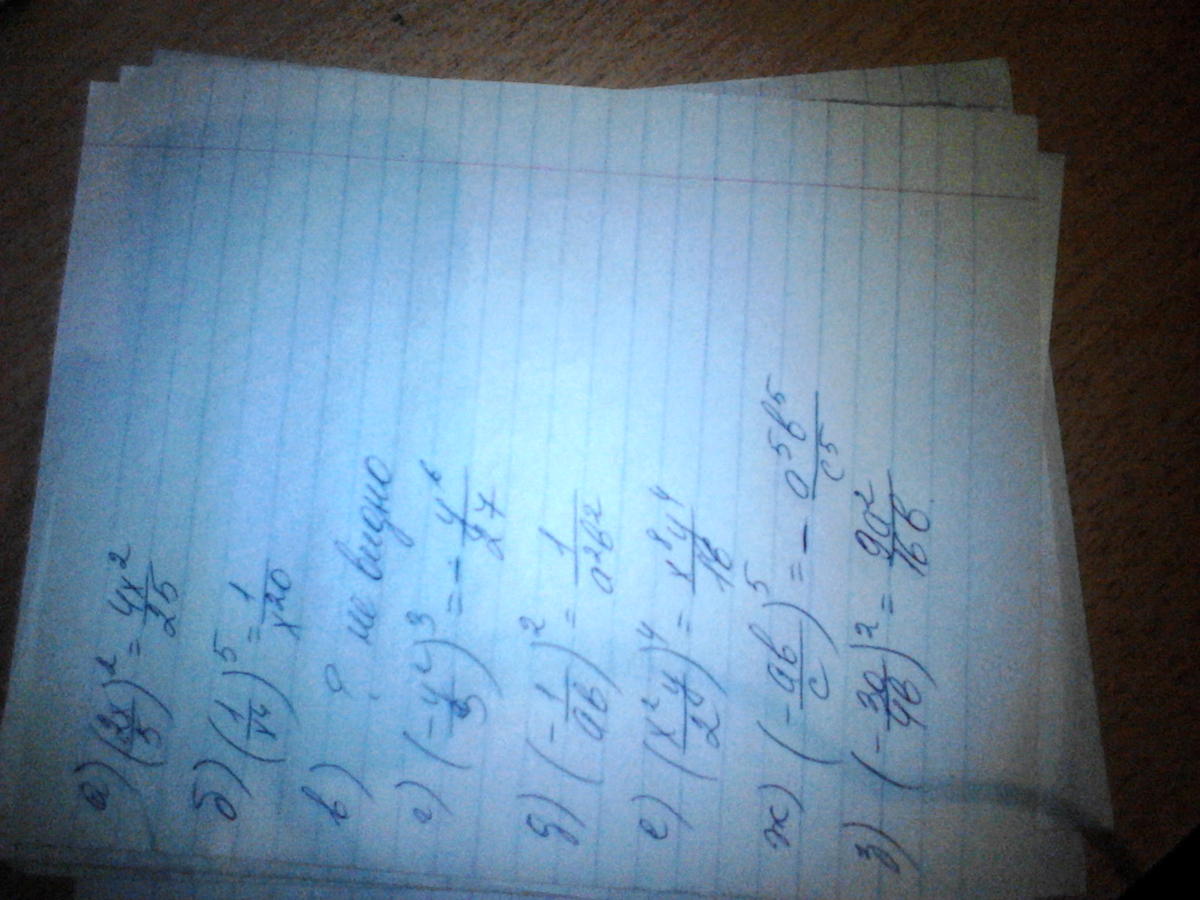 а) (2x/5)^2 = 4x^2/25
б) (1/x^4)^5 = 1/x^20
в) ? не видно
г) (-y^2/3)^3 = - y^6/27
д) (-1/ab)^2 = 1/a^2b^2
е) (x^2y/2)^4 = x^8y^4/16
ж) (-ab/c)^5 = - a^5b^5/c^5
з) (-3a/4b)^2 = 9a^2/16b